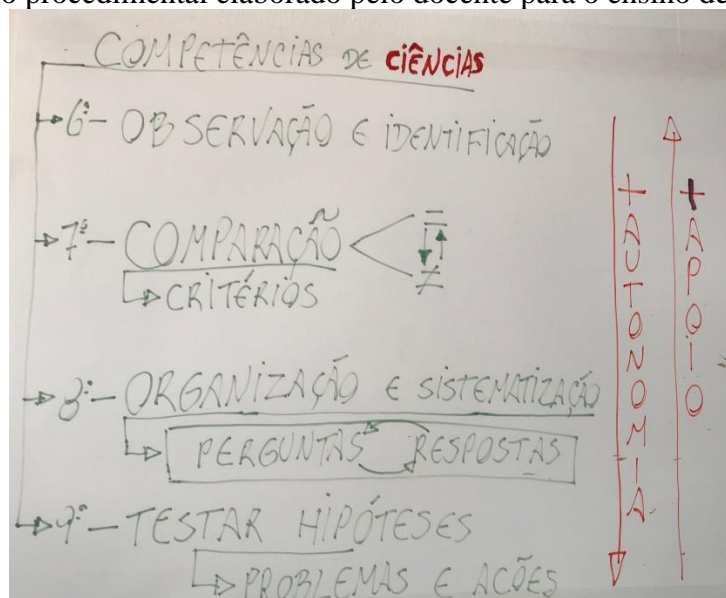 o procedimental elaborado pelo docente para o ensino de
COMPETÊNCIAS DE CIÊNCIAS
6º - OBSERVAÇÃO E IDENTIFICAÇÃO
7º - COMPARAÇÃO < = ≠
CRITÉRIOS
8º - ORGANIZAÇÃO E SISTEMATIZAÇÃO
PERGUNTAS RESPOSTAS
9º - TESTAR HIPÓTESES
PROBLEMAS E AÇÕES
+ AUTONOMIA
+ APOIO